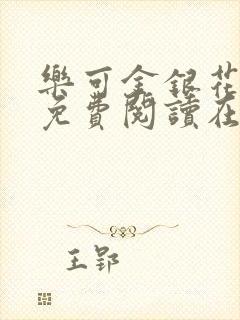 樂可金銀花
免費閱讀在
王郢